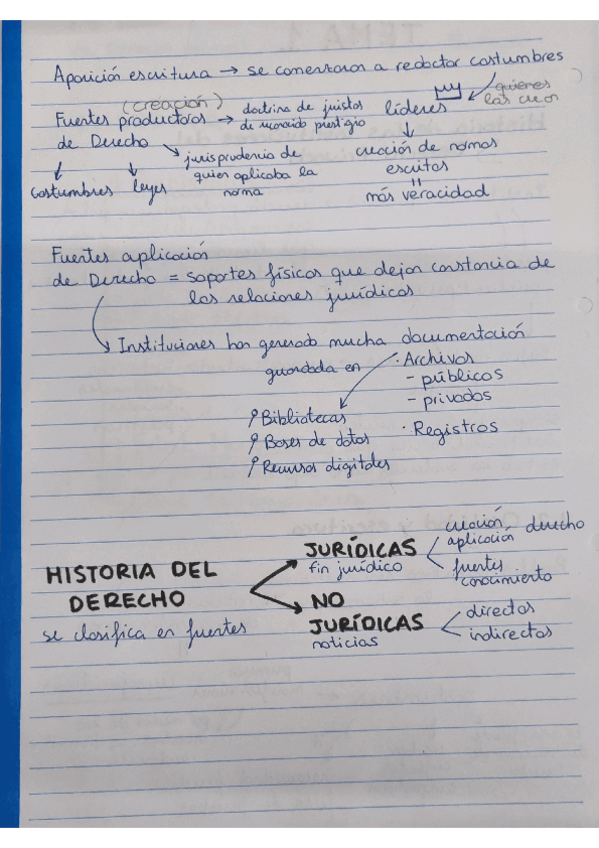 Aparición escritura → se comenzaron a redactar costumbres
(creación)
Fuentes productoras → doctrina de juristas
de Derecho de reconocido prestigio
líderes
quienes
las crean
↘ jurisprudencia de
quien aplicaba la
norma
costumbres leyes
creación de normas
escritas
=
más veracidad
Fuentes aplicación
de Derecho = soportes físicos que dejan constancia de
las relaciones jurídicas
Instituciones han generado mucha documentación
guardada en
· Archivos
- públicos
- privados
· Registros
Bibliotecas
Bases de datos
Recursos digitales
HISTORIA DEL
DERECHO
se clasifica en fuentes
JURÍDICAS
fin jurídico
creación
aplicación derecho
fuentes
conocimiento
NO
JURÍDICAS
noticias
directas
indirectas